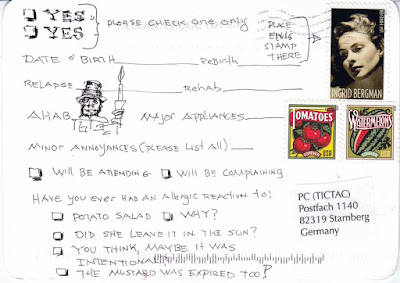 YES
YES
PLEASE CHECK ONE ONLY
PLACE
ELVIS
STAMP
THERE
DATE OF BIRTH REBIRTH
RELAPSE REHAB
AHAB MAJOR APPLIANCES
MINOR ANNOYANCES (PLEASE LIST ALL)
WILL BE ATTENDING WILL BE COMPLAINING
HAVE YOU EVER HAD AN ALLERGIC REACTION TO:
POTATO SALAD WHY?
DID SHE LEAVE IT IN THE SUN?
YOU THINK, MAYBE IT WAS
INTENTIONAL?
THE MUSTARD WAS EXPIRED TOO?
INGRID BERGMAN
TOMATOES
USA
WATERMELONS
PC (TICTAC)
Postfach 1140
82319 Starnberg
Germany